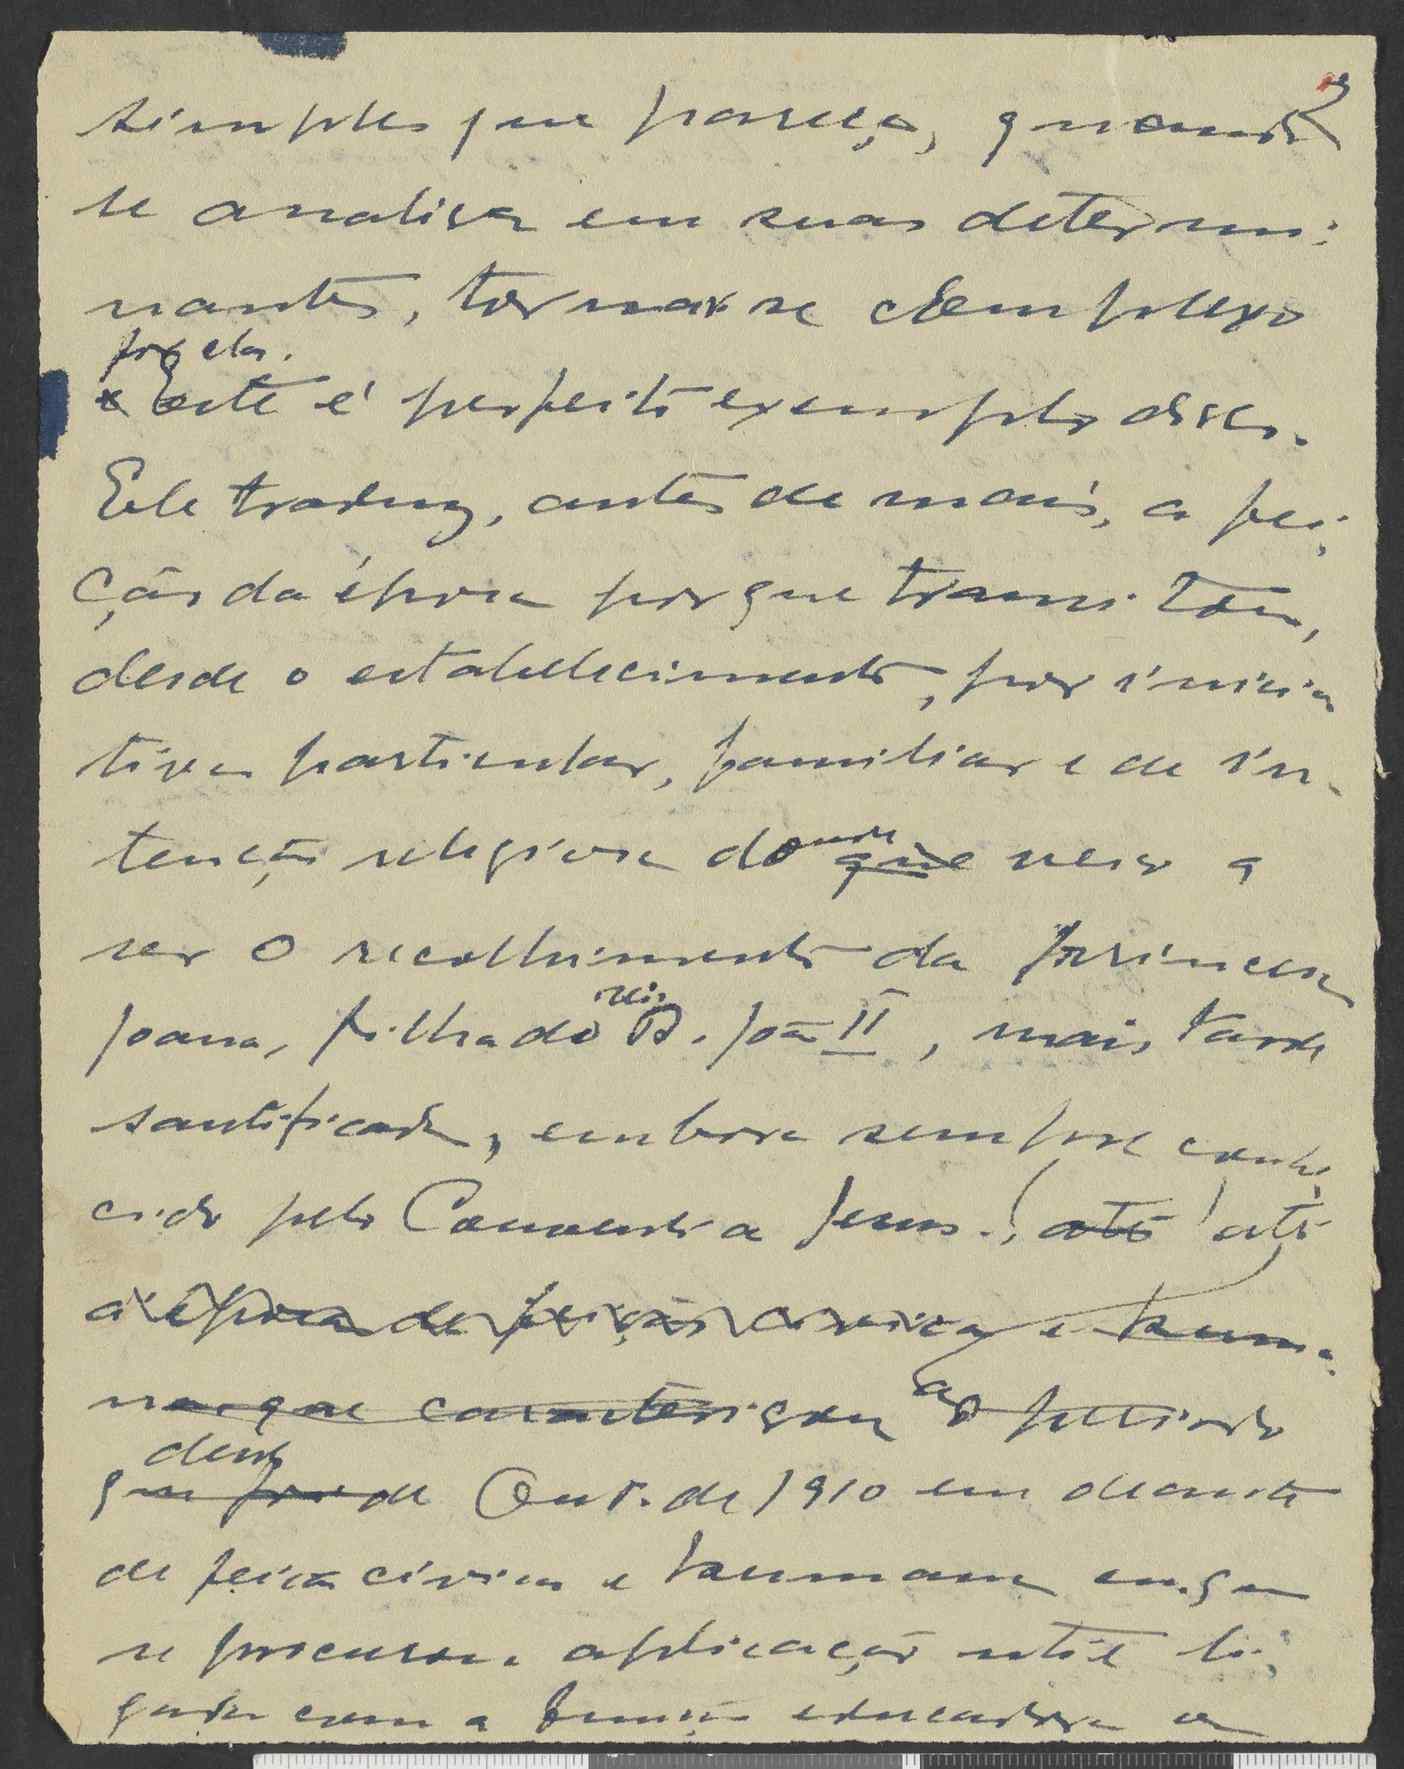 3
simples que pareça, quando
se analisa em suas determi-
nantes, torna-se complexo
por elas.
Este é perfeito exemplo disso.
Ele traduz, antes de mais, a fei-
ção da época porque transitou,
desde o estabelecimento, por inicia
tiva particular, familiar e de in-
tenção religiosa do onde que veio a
ser o recolhimento da Princesa
Joana, filha do rei D. João II, mais tarde
santificada, embora sempre conhe
cido pelo Convento a Jesus., (até) até
a época de feição cívica e huma-
na que caracterizou ao periodo
desde
que foi de Out. de 1910 em deante
de feição cívica e humana em que
se procurou aplicação util li-
gada com a função educadora